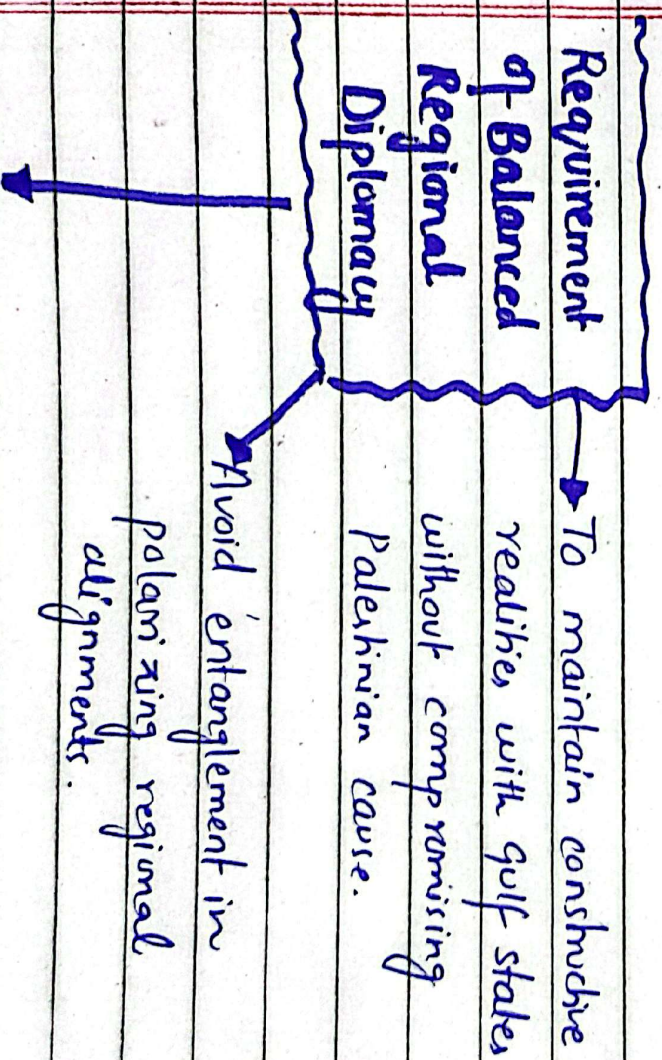 Requirement
of Balanced
Regional
Diplomacy
To maintain constructive
realities with gulf states
without compromising
Palestinian cause.
Avoid entanglement in
polarizing regional
alignments.